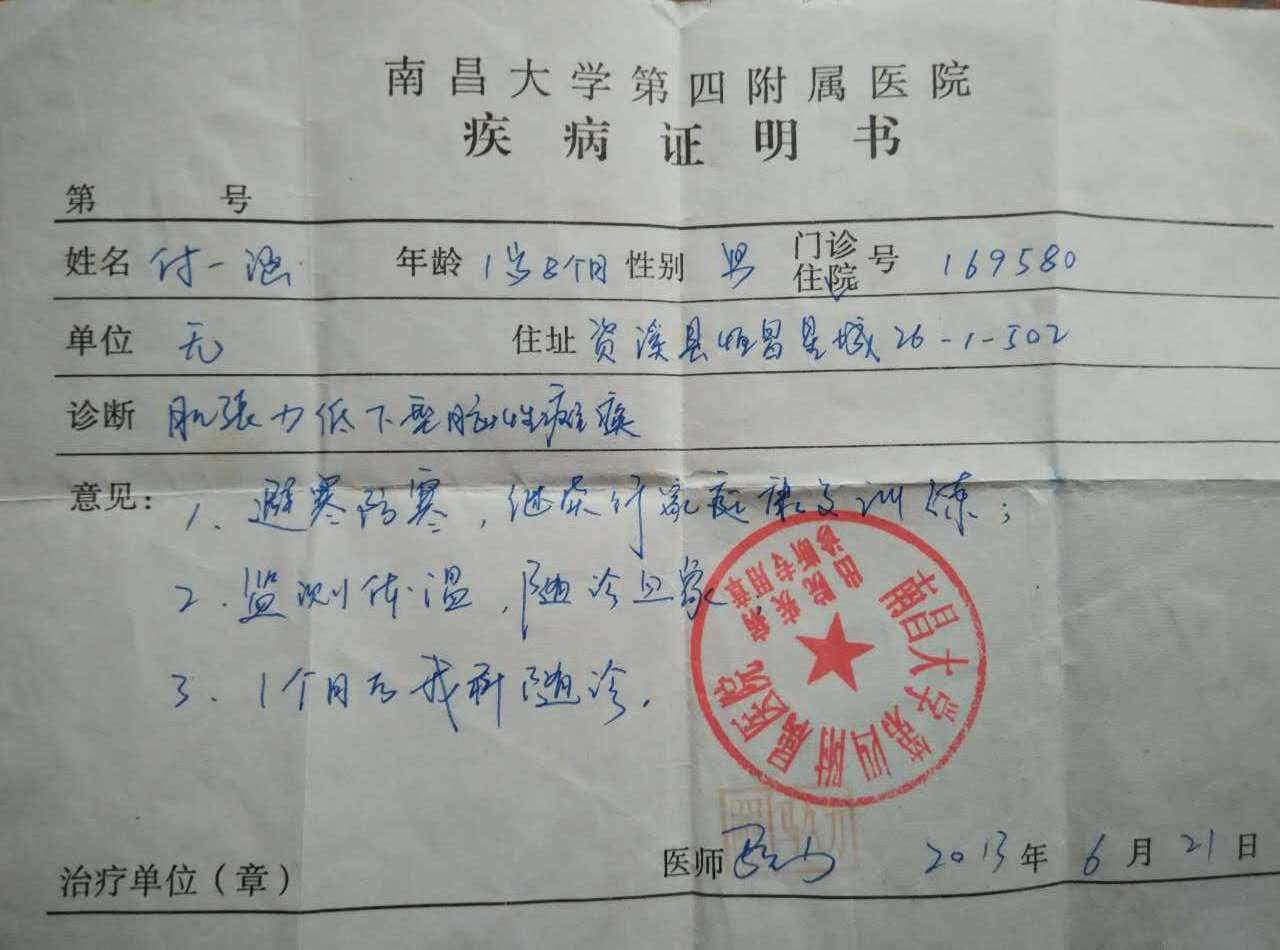 南昌大学第四附属医院
疾病证明书
第 号
姓名 付一涵 年龄 1岁8个月 性别 男 门诊 住院 号 169580
单位 无 住址 资溪县恒昌星城26-1-502
诊断 肌张力低下型脑性瘫痪
意见: 1. 避寒防寒,继续行家庭康复训练;
2. 监测体温,随诊
3. 1个月后我科随诊.
南昌大学第四附属医院
出院疾病
诊断专用章
治疗单位(章) 医师 2013年6月21日